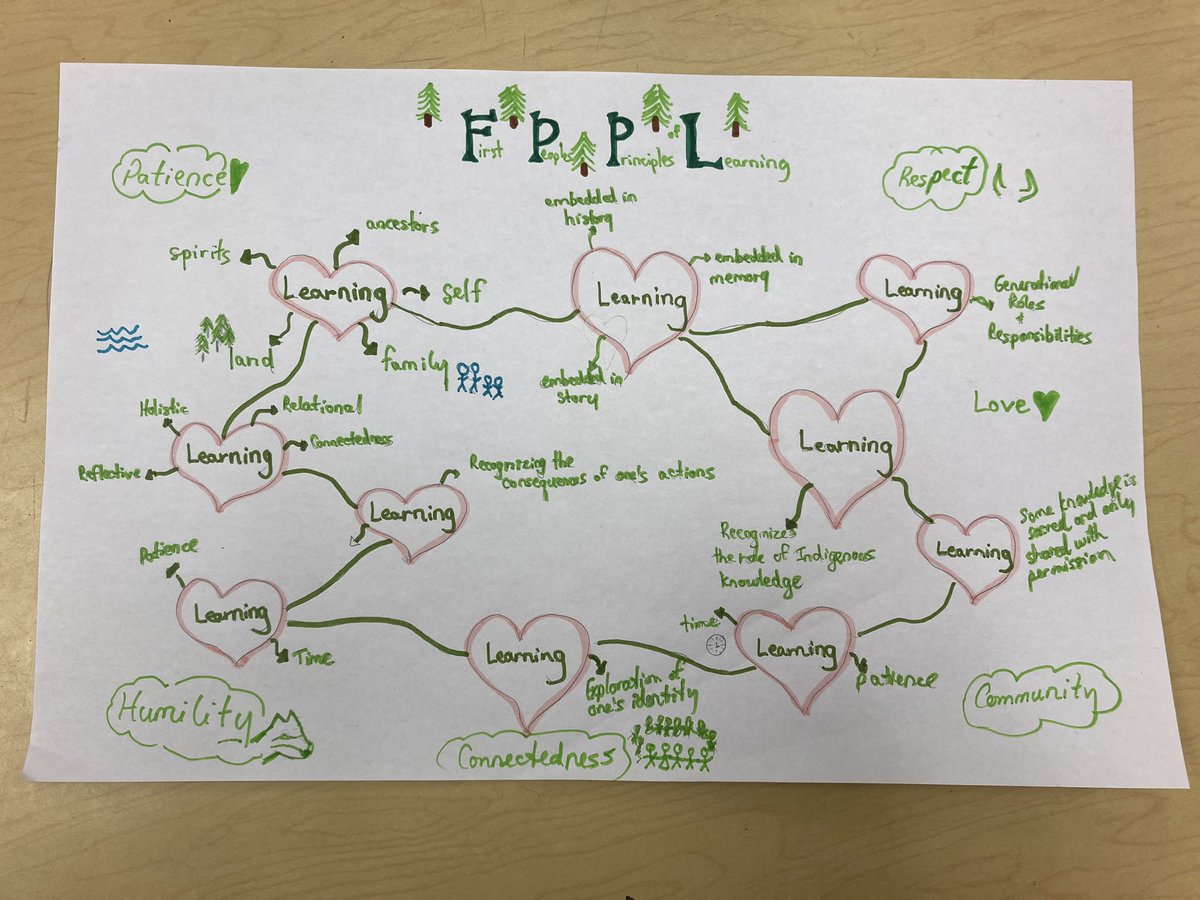 First Peoples Principles of Learning
Patience
Respect
ancestors
spirits
Learning
self
land
family
embedded in
history
Learning
embedded in
memory
embedded in
story
Learning
Generational
Roles
+
Responsibilities
Love
Holistic
Relational
Learning
Connectedness
Reflective
Learning
Recognizing the
consequences of one's actions
Learning
Recognizes
the role of Indigenous
knowledge
Learning
Some knowledge is
sacred and only
shared with
permission
Patience
Learning
Time
Learning
Exploration of
one's identity
time
Learning
patience
Humility
Connectedness
Community